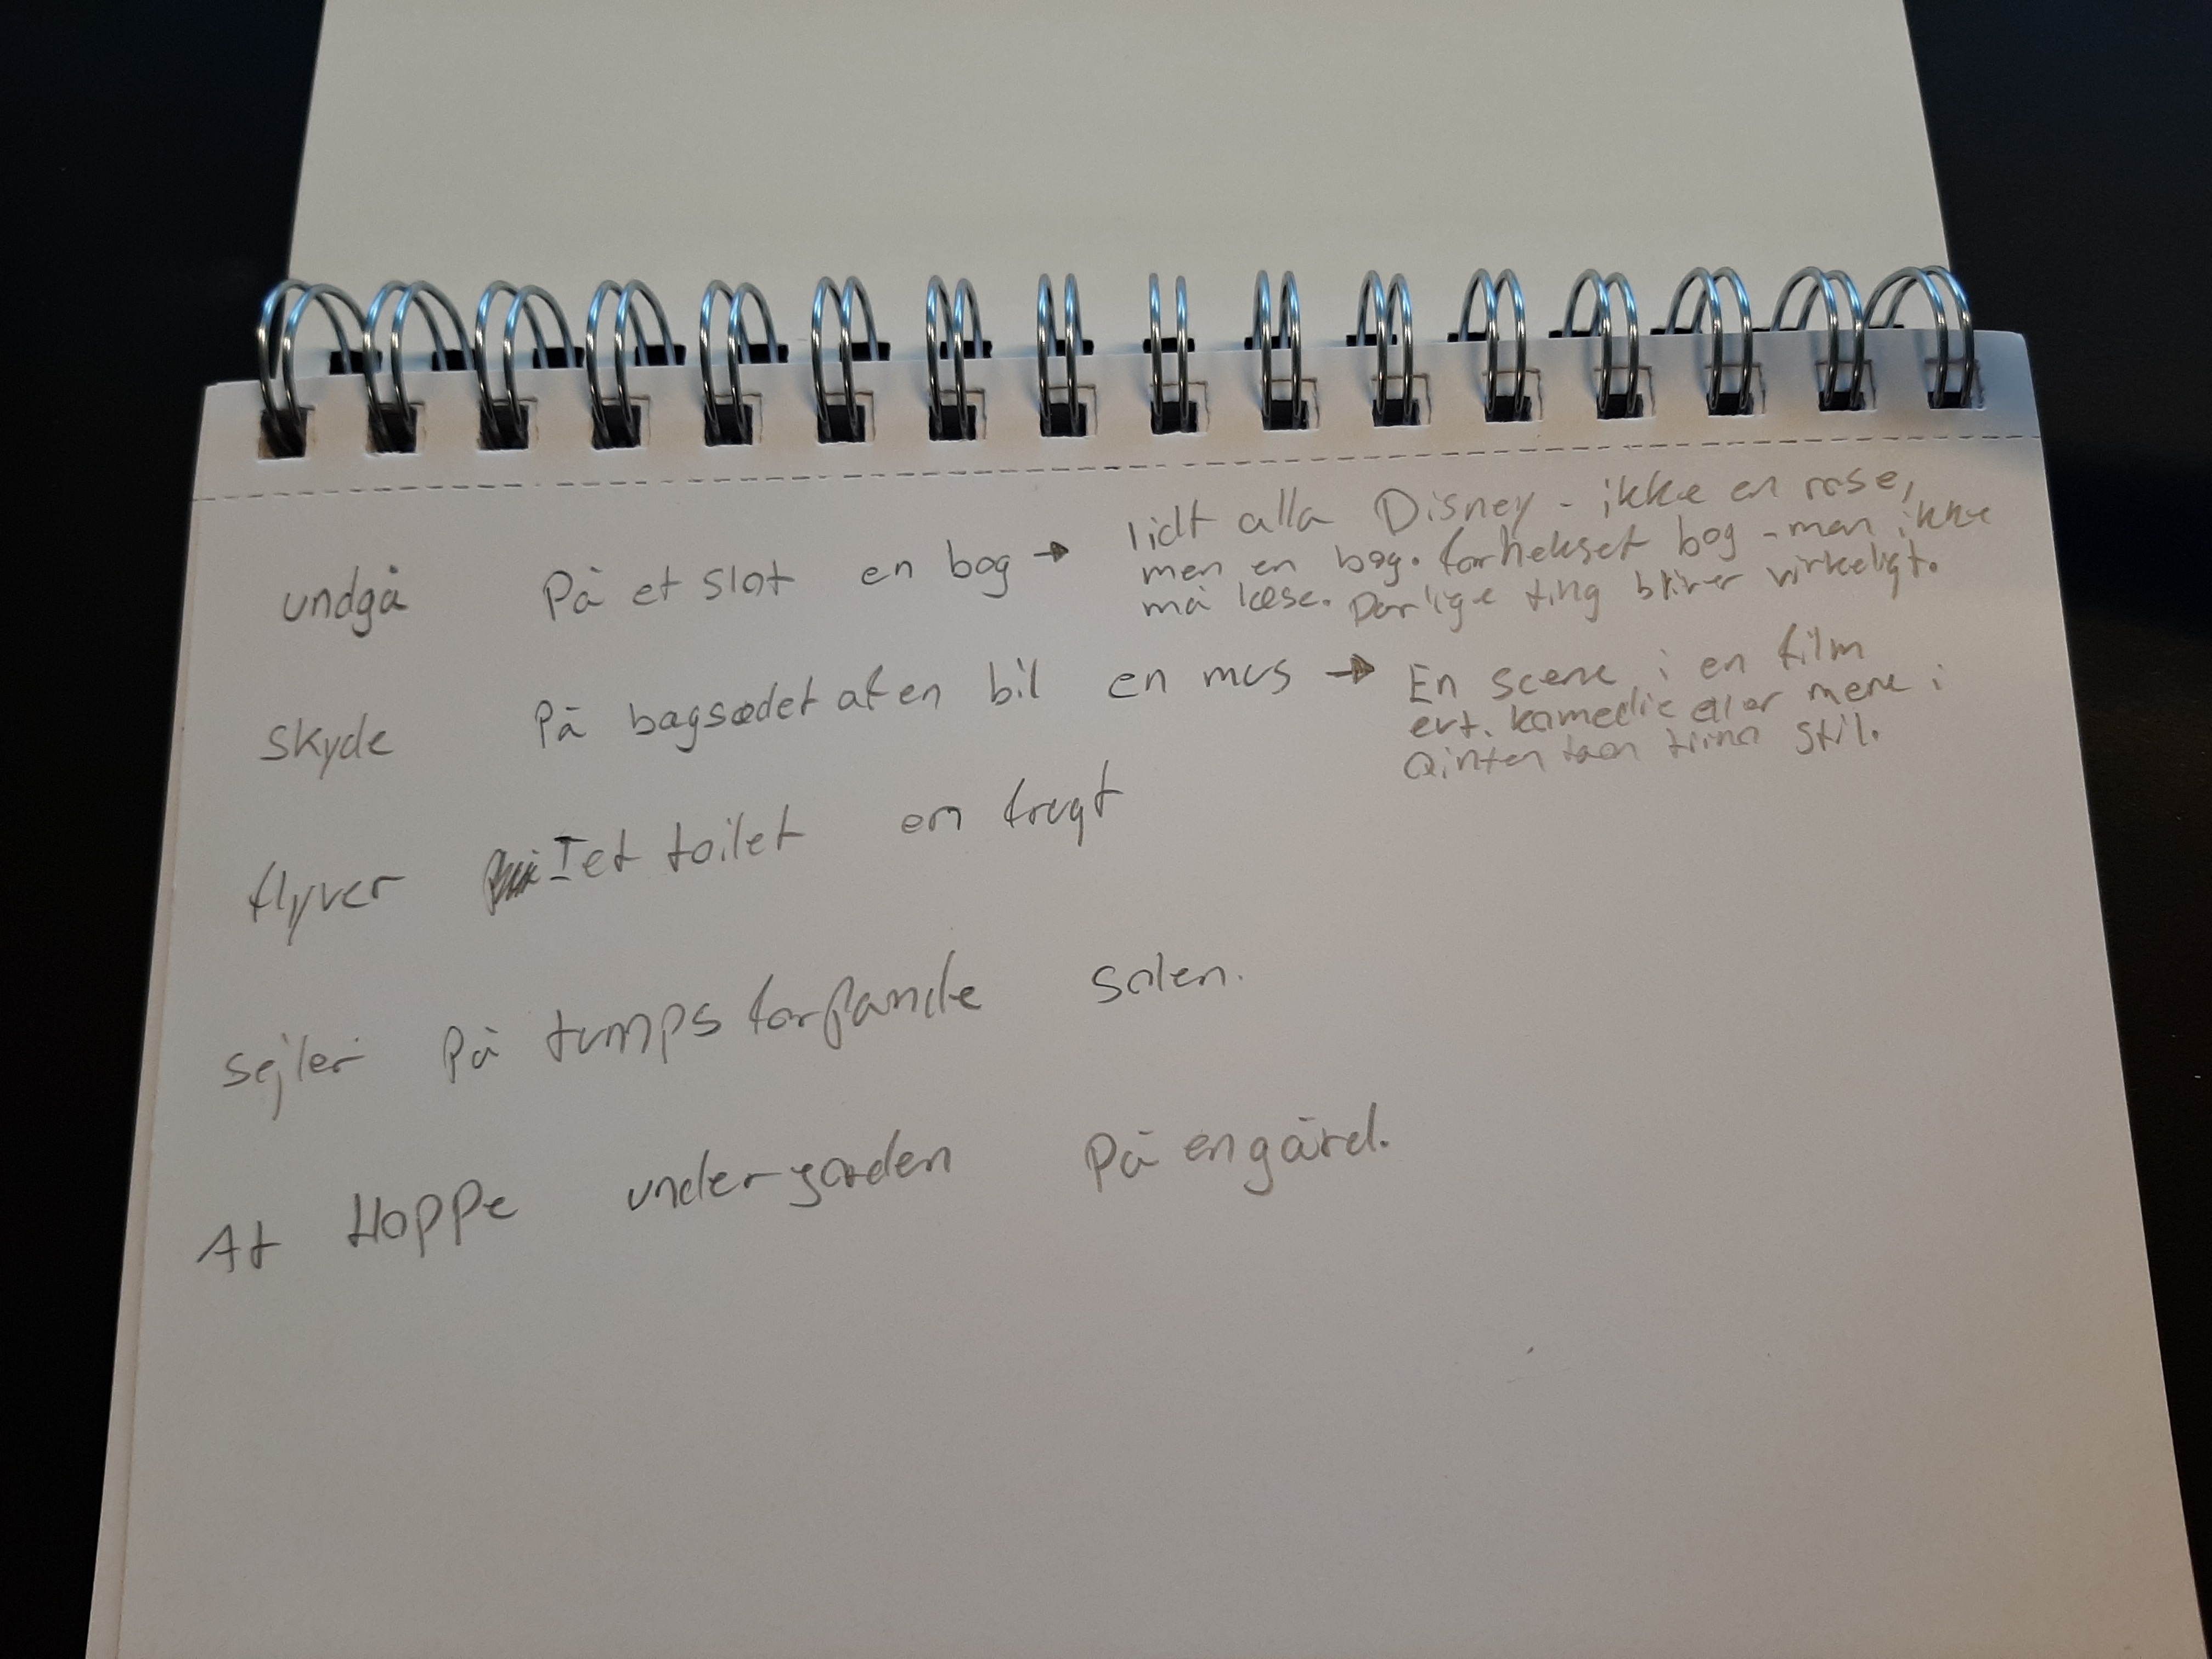 undgå På et slot en bog → lidt alla Disney - ikke en rose,
men en bog. forhekset bog - man ikke
må læse. Dårlige ting bliver virkeligt.
skyde På bagsædet af en bil en mus → En scene i en film
evt. komedie eller mere i
stil.
flyver I et toilet en frugt
sejler på solen.
At Hoppe under-gården på en gård.